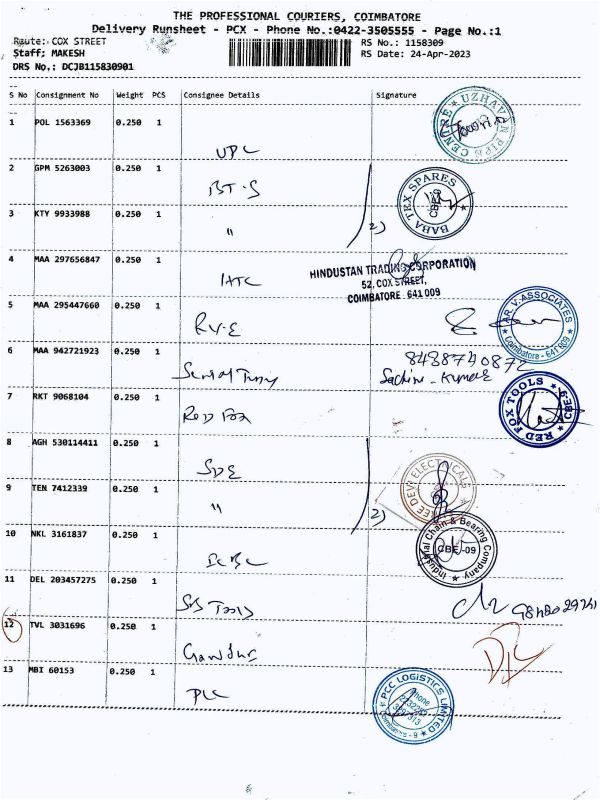 THE PROFESSIONAL COURIERS, COIMBATORE
Delivery Runsheet - PCX - Phone No.:0422-3505555 - Page No.:1
Route: COX STREET RS No.: 1158309
Staff: MAKESH RS Date: 24-Apr-2023
DRS No.: DCJB115830901
S No Consignment No Weight PCS Consignee Details Signature
1 POL 1563369 0.250 1 UPC
UZHAVAN PIPE CENTRE
2 GPM 5263003 0.250 1 BT-S
BABA TEX SPARES CBE-9
3 KTY 9933988 0.250 1 " 2)
4 MAA 297656847 0.250 1 HTC
HINDUSTAN TRADING CORPORATION
52, COX STREET,
COIMBATORE - 641 009
5 MAA 295447660 0.250 1 R.V.E
AR.V.ASSOCIATES Coimbatore - 641 009
6 MAA 942721923 0.250 1
8438740872
Sachin - Kumar
7 RKT 9068104 0.250 1 Red Fox
RED FOX TOOLS CBE-9
8 AGH 530114411 0.250 1 SDE
DEVI ELECTRICALS
9 TEN 7412339 0.250 1 " 2)
10 NKL 3161837 0.250 1 ICBC
Industrial Chain & Bearing Company CBE-09
11 DEL 203457275 0.250 1 SB Tools
12 TVL 3031696 0.250 1
13 MBI 60153 0.250 1 PLC
PCC LOGISTICS LIMITED
Phone